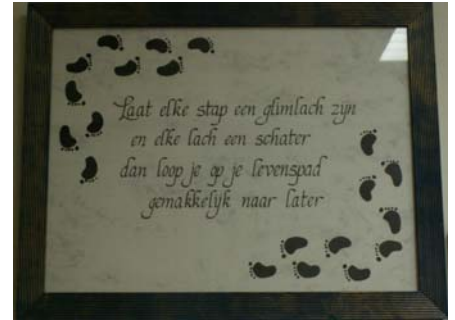 Laat elke stap een glimlach zijn
en elke lach een schater
dan loop je op je levenspad
gemakkelijk naar later